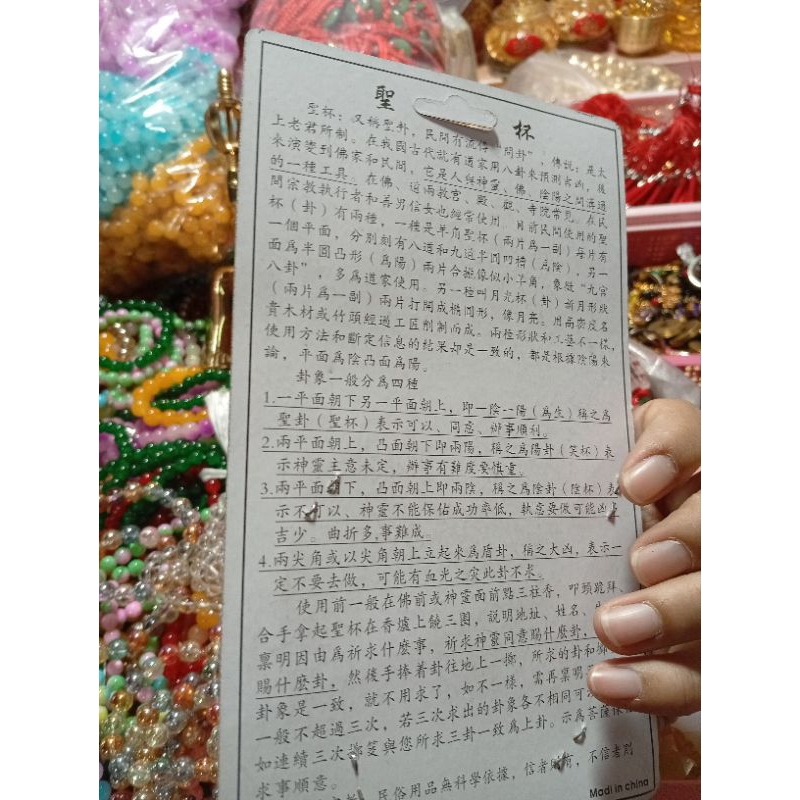 聖 杯
聖杯：又稱聖卦，民間有流行"問卦"，傳說：是太
上老君所制。在我國古代就有道家用八卦來預測吉凶，後
來演變到佛家和民間，它是人與神靈、佛、陰陽之間溝通
的一種工具。在佛、道兩教宮、殿、觀、寺院常見。在民
間宗教執行者和善男信女也經常使用。目前民間使用的聖
杯（卦）有兩種，一種是羊角聖杯（兩片為一副）每片有
一個平面，分別刻有八道和九道半圓凹槽（為陰），另一
面為半圓凸形（為陽）兩片合攏像似小羊角，象徵"九宮
八卦"，多為道家使用。另一種叫月光杯（卦）新月形狀
（兩片為一副）兩片打開成橢圓形，像月亮。用高密度名
貴木材或竹頭經過工匠削制而成。兩種形狀和工藝不一樣，
使用方法和斷定信息的結果却是一致的，都是根據陰陽來
論，平面為陰凸面為陽。
卦象一般分為四種
1.一平面朝下另一平面朝上，即一陰一陽（為生）稱之為
聖卦（聖杯）表示可以、同意、辦事順利。
2.兩平面朝上，凸面朝下即兩陽，稱之為陽卦（笑杯）表
示神靈主意未定，辦事有難度要慎重。
3.兩平面朝下，凸面朝上即兩陰，稱之為陰卦（陰杯）表
示不可以、神靈不能保佑成功率低，執意要做可能凶多
吉少。曲折多,事難成。
4.兩尖角或以尖角朝上立起來為盾卦，稱之大凶，表示一
定不要去做，可能有血光之灾此卦不求。
使用前一般在佛前或神靈面前點三柱香，叩頭跪拜、
合手拿起聖杯在香爐上饒三圈，説明地址、姓名、
禀明因由為祈求什麼事，祈求神靈同意賜什麼卦，
賜什麼卦，然後手捧着卦往地上一擲，所求的卦和擲
卦象是一致，就不用求了，如不一樣，需再禀明
一般不超過三次，若三次求出的卦象各不相同可
如連續三次擲筊與您所求三卦一致為上卦。示為菩薩保
求事順意。
民俗用品無科學依據，信者則有，不信者則
Madi in china